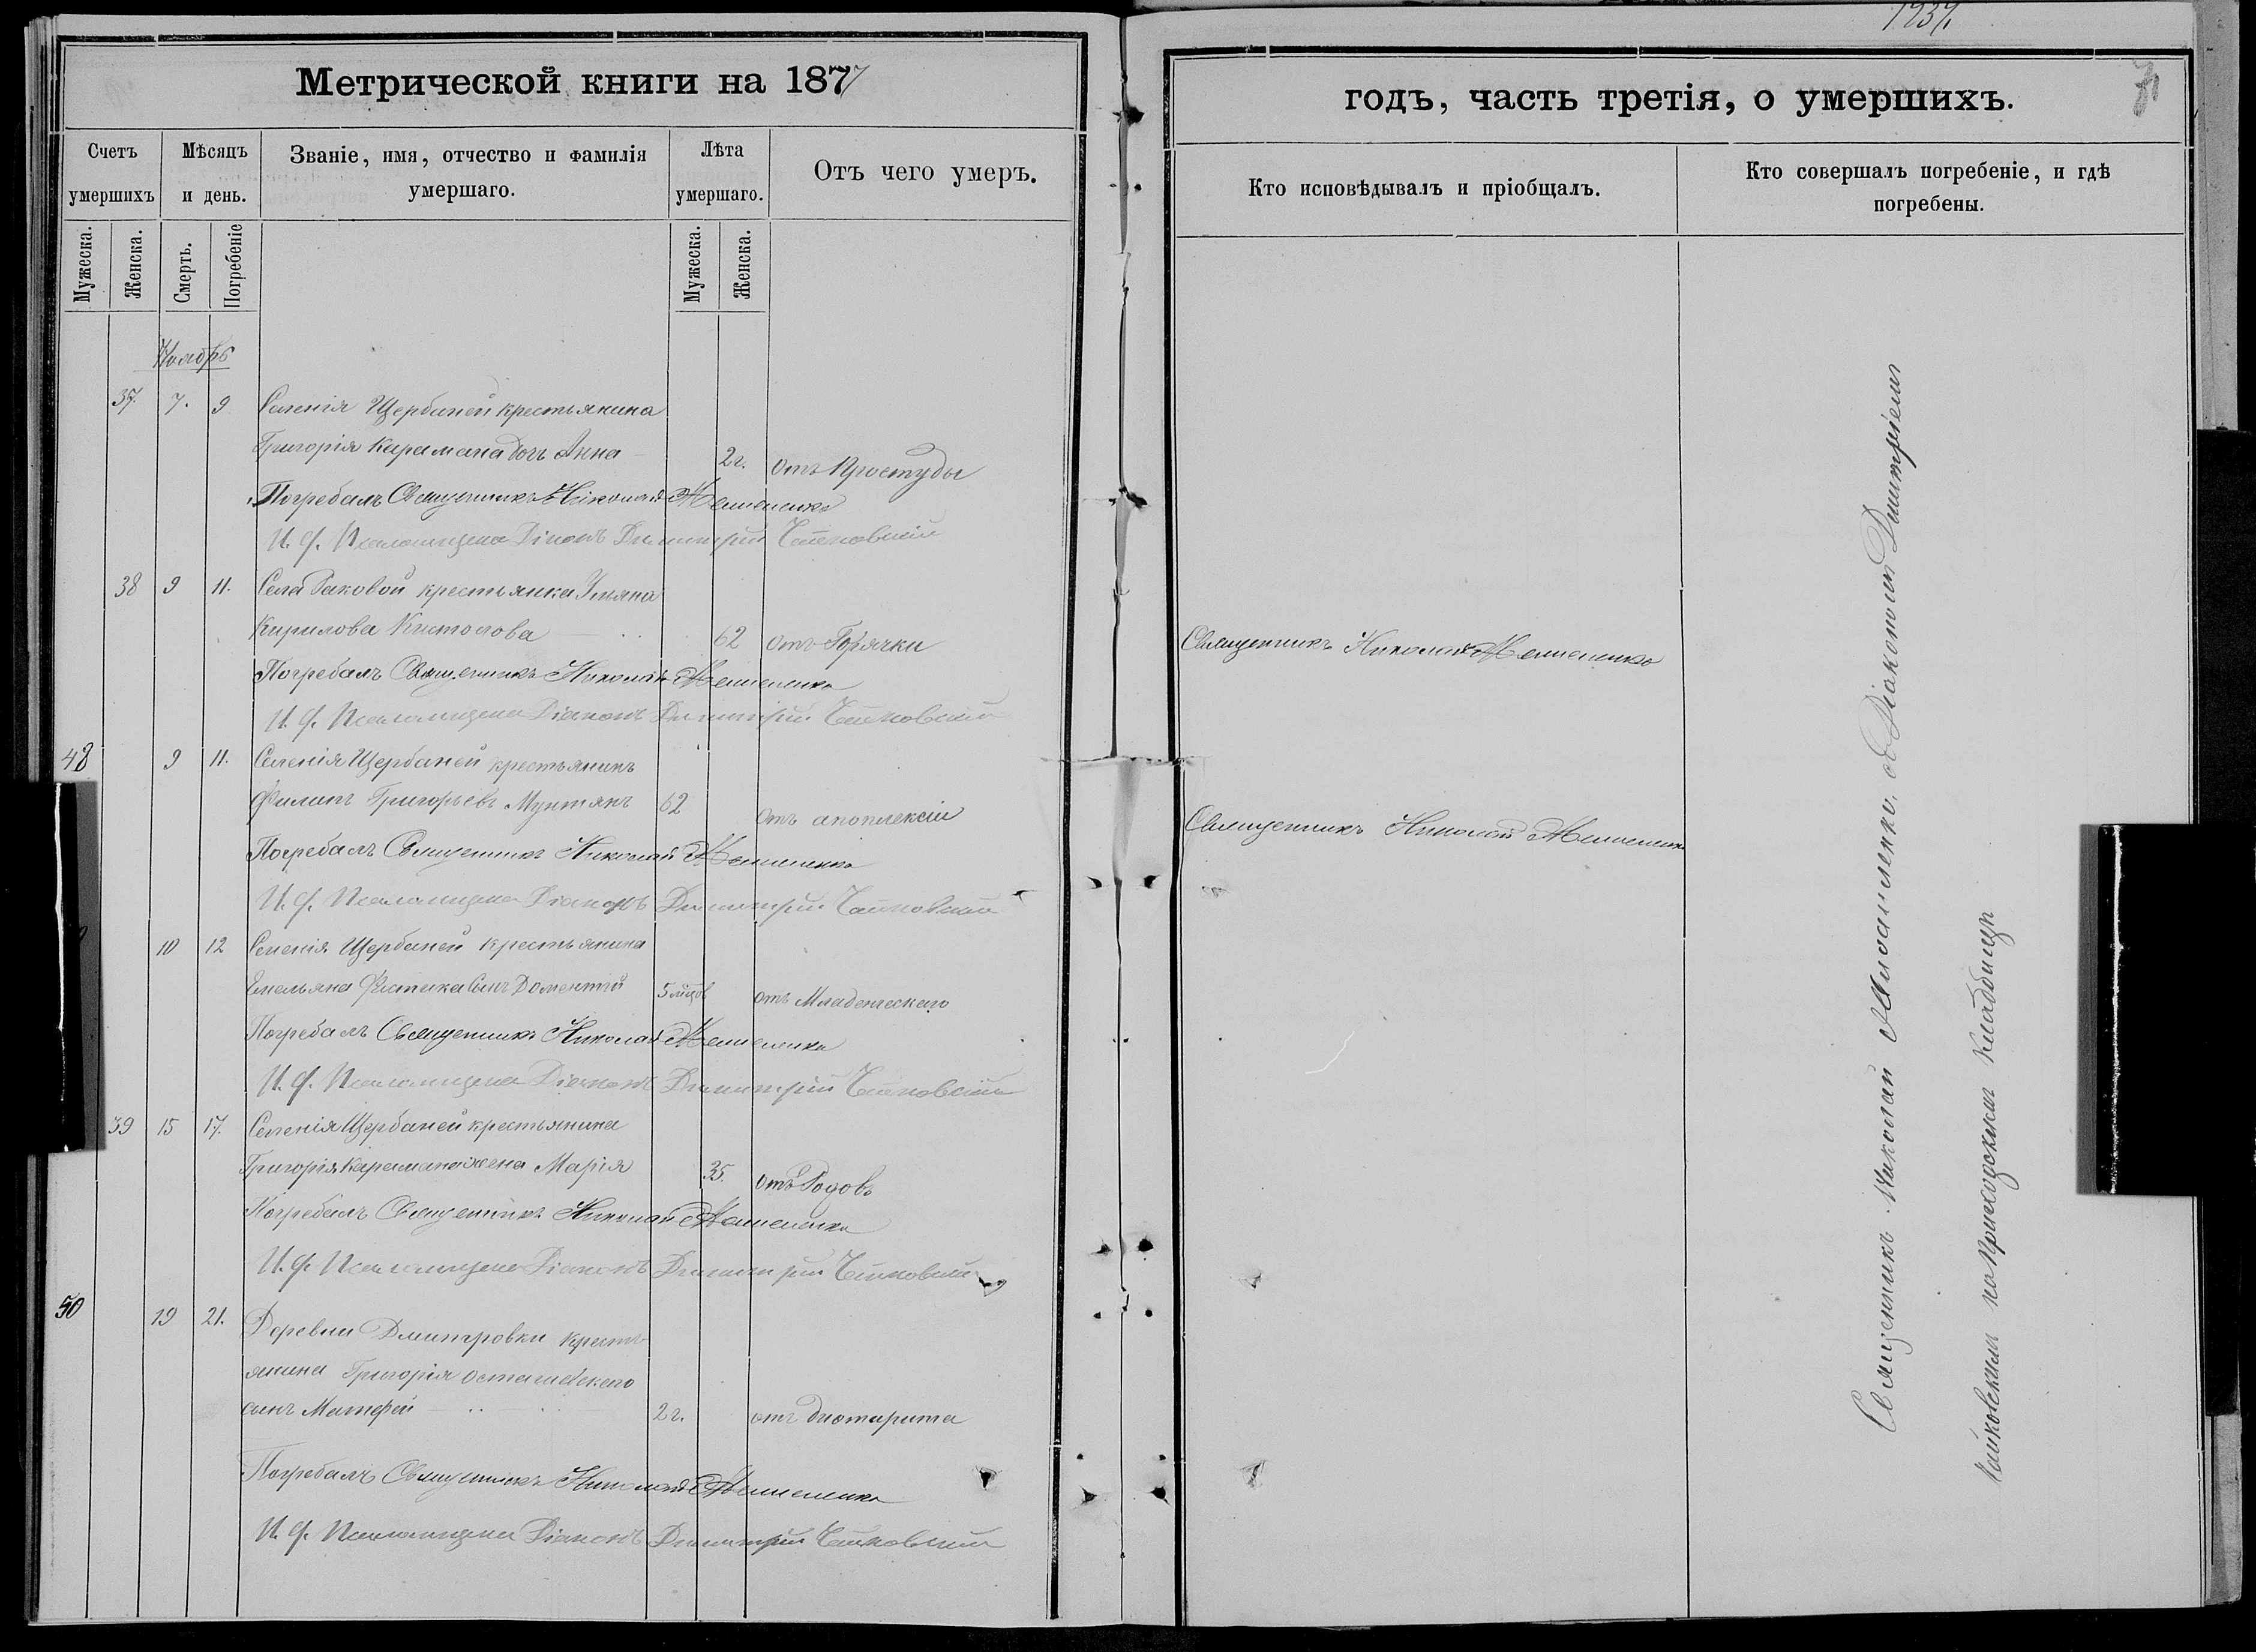 1237
Метрической книги на 1877
годъ, часть третія, о умершихъ.
71
Счетъ умершихъ
Мѣсяцъ и день.
Званіе, имя, отчество и фамилія умершаго.
Лѣта умершаго.
Отъ чего умеръ.
Кто исповѣдывалъ и пріобщалъ.
Кто совершалъ погребеніе, и гдѣ погребены.
Мужеска.
Женска.
Смерть.
Погребеніе
Мужеска.
Женска.
Ноябрь
37. 7. 9 Селенія Щербаней крестьянина
Григорія Карамана дочь Анна 2 г. отъ Простуды
Погребалъ Священникъ Николай
И. ф. Псаломщика Діаконъ Димитрій Чайковскій
38 9 11. Села Раковой крестьянка Ульяна
Кирилова 62 отъ Горячки
Священникъ Николай
Погребалъ Священникъ Николай
И. ф. Псаломщика Діаконъ Димитрій Чайковскій
48 9 11. Селенія Щербаней крестьянинъ
Филипъ Григорьевъ Мунтянъ 62 отъ апоплексіи
Священникъ Николай
Погребалъ Священникъ Николай
И. ф. Псаломщика Діаконъ Димитрій Чайковскій
10 12 Селенія Щербаней крестьянина
Емельяна сынъ Доментій 5 отъ Младенческаго
Погребалъ Священникъ Николай
И. ф. Псаломщика Діаконъ Димитрій Чайковскій
39 15 17. Селенія Щербаней крестьянина
Григорія Карамана жена Марія 35. отъ Родовъ
Погребалъ Священникъ Николай
И. ф. Псаломщика Діаконъ Димитрій Чайковскій
50 19 21. Деревни Дмитровки кресть-
янина Григорія Осташевскаго
сынъ Матфей 2 г. отъ
Погребалъ Священникъ Николай
И. ф. Псаломщика Діаконъ Димитрій Чайковскій
Священникъ Николай съ Діакономъ Димитріемъ
Чайковскимъ на приходскомъ кладбищѣ